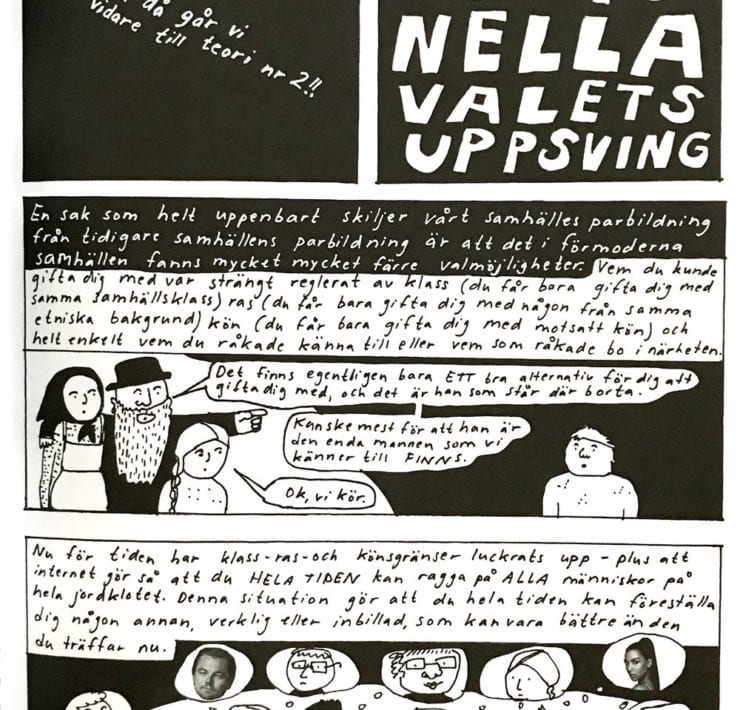 då går vi
vidare till teori nr 2!!
NELLA
VALETS
UPPSVING
En sak som helt uppenbart skiljer vårt samhälles parbildning
från tidigare samhällens parbildning är att det i förmoderna
samhällen fanns mycket mycket färre valmöjligheter. Vem du kunde
gifta dig med var strängt reglerat av klass (du får bara gifta dig med
samma samhällsklass) ras (du får bara gifta dig med någon från samma
etniska bakgrund) kön (du får bara gifta dig med motsatt kön) och
helt enkelt vem du råkade känna till eller vem som råkade bo i närheten.
Det finns egentligen bara ETT bra alternativ för dig att
gifta dig med, och det är han som står där borta.
Kanske mest för att han är
den enda mannen som vi
känner till FINNS.
Ok, vi kör.
Nu för tiden har klass-ras-och könsgränser luckrats upp - plus att
internet gör så att du HELA TIDEN kan ragga på ALLA människor på
hela jordklotet. Denna situation gör att du hela tiden kan föreställa
dig någon annan, verklig eller inbillad, som kan vara bättre än den
du träffar nu.